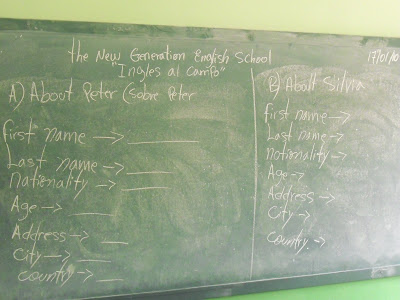 the New Generation English School
"Ingles al Campo"
17/01/10
A) About Peter (Sobre Peter
first name → ______
Last name → ____
nationality → ____
Age → ____
Address → ___
City → ____
country → ___
B) Aboll Silvia
first name →
Last name →
notionality →
Age →
Address →
City →
country. →